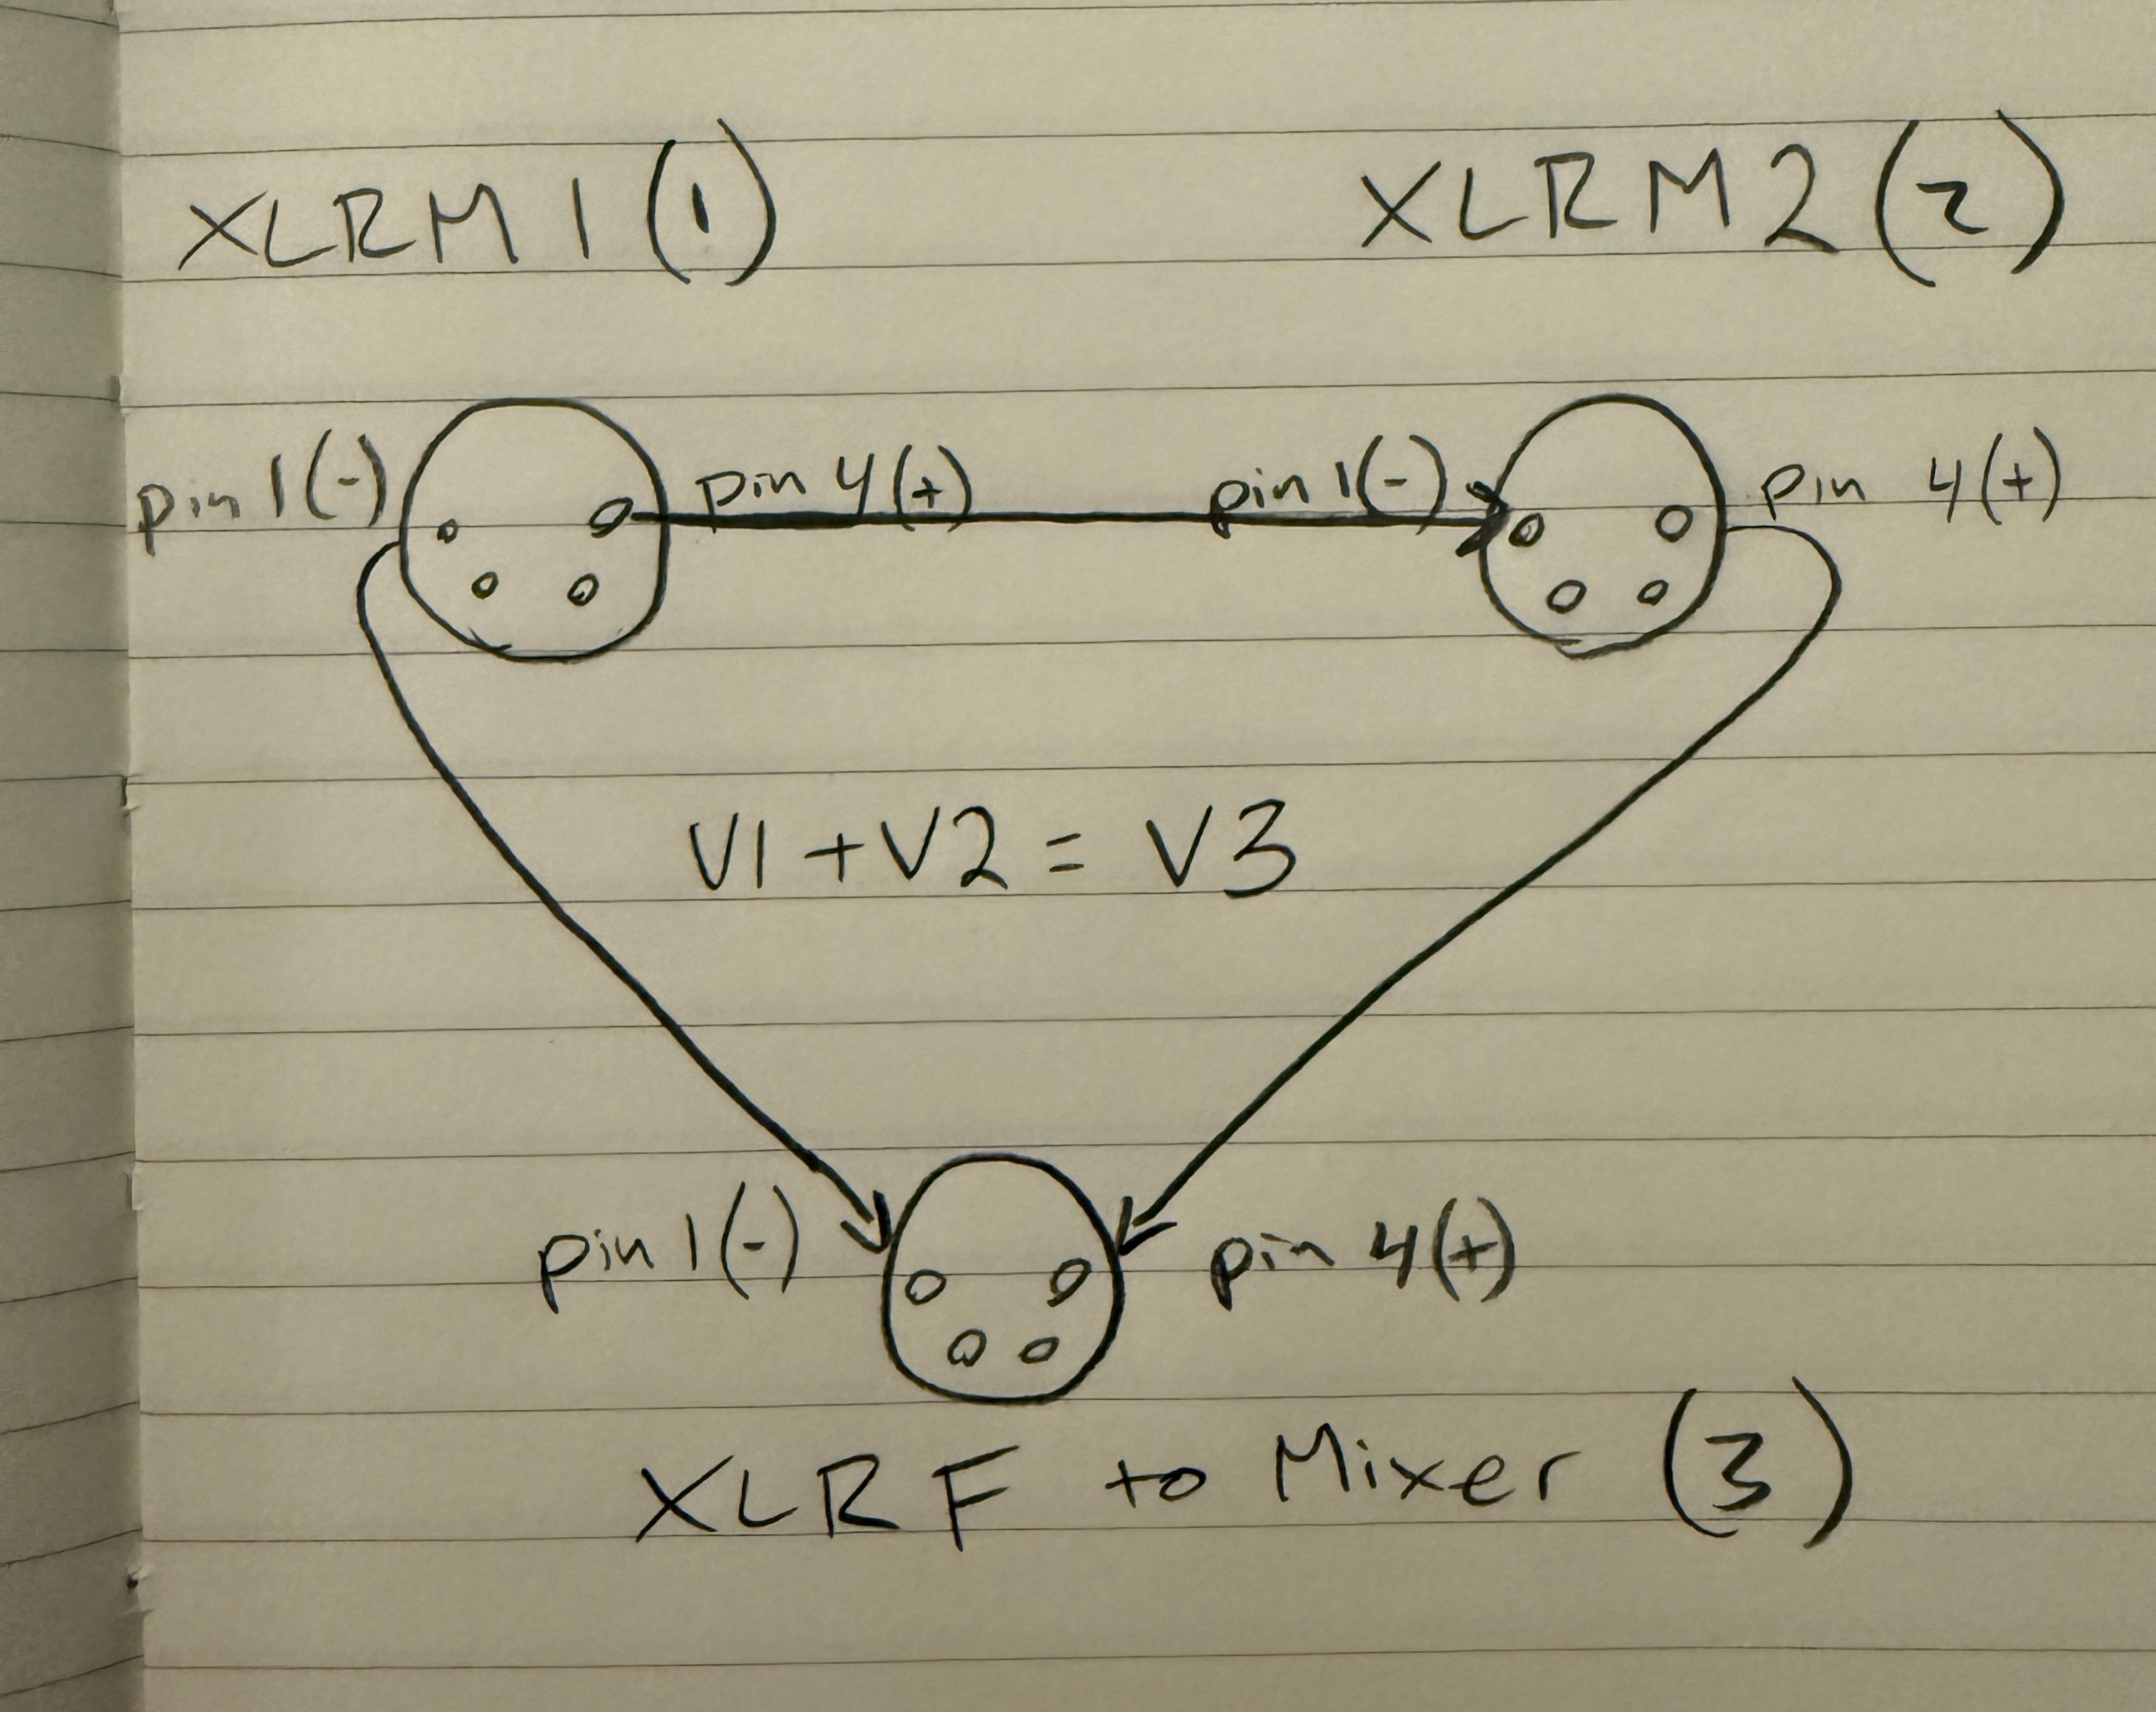 XLRM1(1) XLRM2(2)
pin 1(-) pin 4(+) pin 1(-) pin 4(+)
V1+V2= V3
pin 1(-) pin 4(+)
XLRF to Mixer (3)